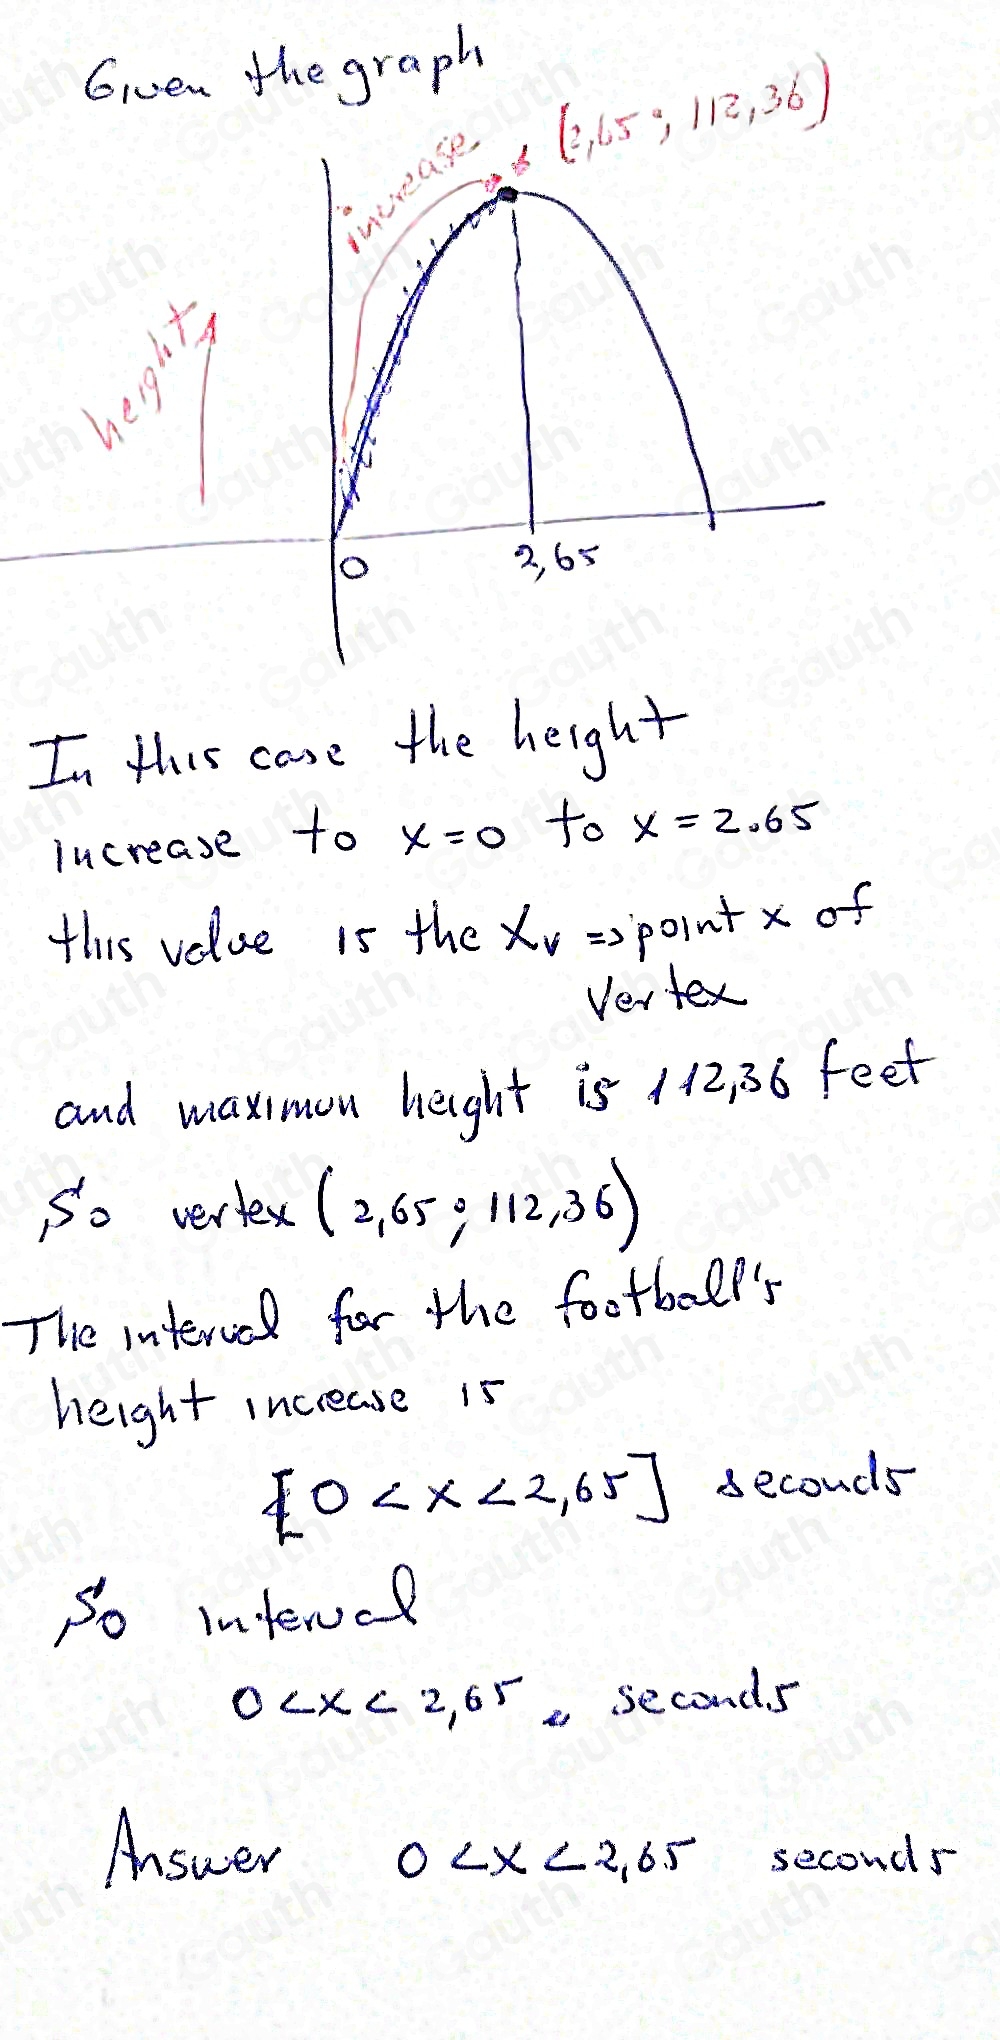 Given the graph
(2,65; 112,36)
increase
height
0
2,65
In this case the height
increase to x=0 to x=2.65
this value is the Xv => point x of
Vertex
and maximun height is 112,36 feet
So vertex (2,65; 112,36)
The interval for the football's
height increase is
[0<x<2,65] seconds
So interval
0<x<2,65. seconds
Answer 0<x<2,65 seconds
Gauth